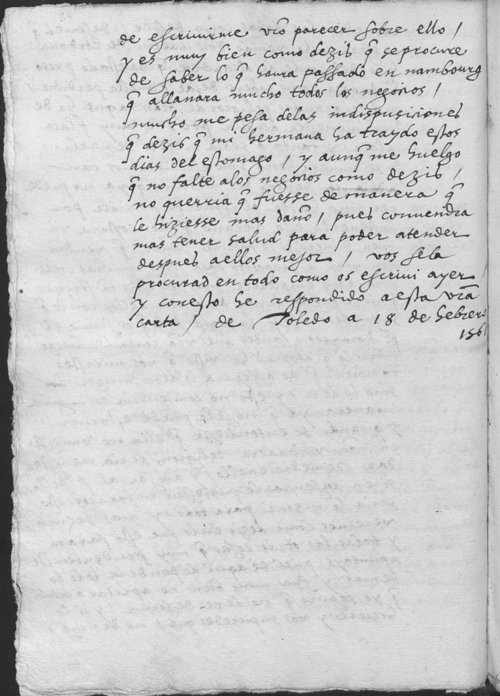 de escrivirme vr̃o parecer sobre ello /
y es muy bien como dezis q̃ se procure
de saber lo q̃ havra passado en nambourg
q̃ allanara mucho todos los negoçios /
mucho me pesa delas indisposiciones
q̃ dezis q̃ mi hermana ha traydo estos
dias del estomago / y aunq̃ me huelgo
q̃ no falte alos negoçios como dezis /
no querria q̃ fuesse de manera q̃
le hiziesse mas daño / pues convendra
mas tener salud para poder atender
despues aellos mejor / vos sela
procurad en todo como os escrivi ayer
y conesto he respondido aesta vr̃a
carta / de Toledo a 18 de hebrero
156